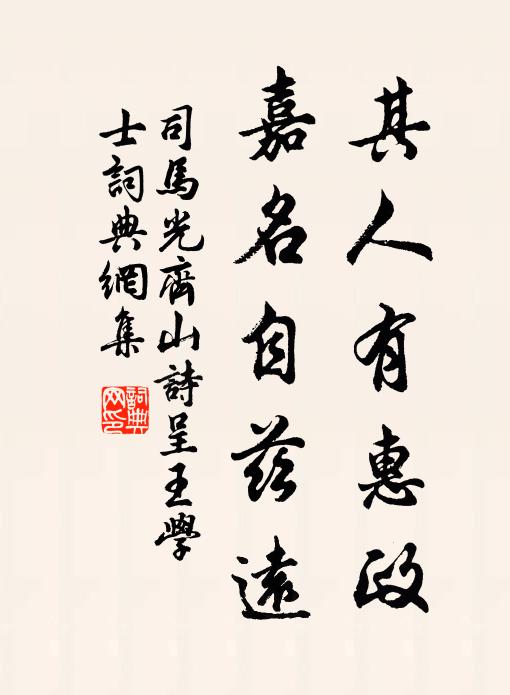 其人有惠政
嘉名自茲遠
司馬光齊山詩呈王學
士詞典網集
詞典
网印